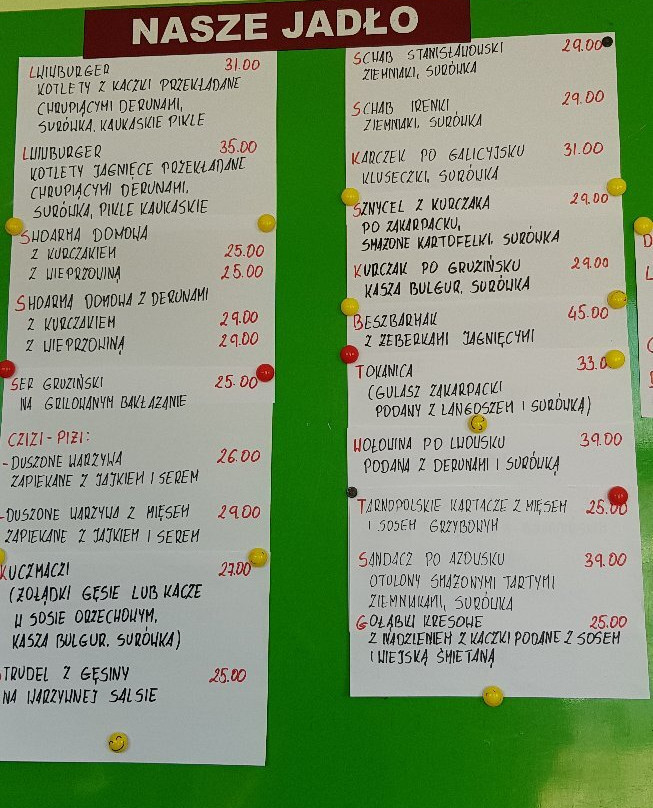 NASZE JADŁO
LWIWBURGER 31.00
KOTLETY Z KACZKI PRZEKŁADANE
CHRUPIĄCYMI DERUNAMI,
SURÓWKA, KAUKASKIE PIKLE
LWIWBURGER 35.00
KOTLETY JAGNIĘCE PRZEKŁADANE
CHRUPIĄCYMI DERUNAMI,
SURÓWKA, PIKLE KAUKASKIE
SHOARMA DOMOWA
Z KURCZAKIEM 25.00
Z WIEPRZOWINĄ 25.00
SHOARMA DOMOWA Z DERUNAMI
Z KURCZAKIEM 29.00
Z WIEPRZOWINĄ 29.00
SER GRUZIŃSKI 25.00
NA GRILOWANYM BAKŁAŻANIE
CZIZI-PIZI:
-DUSZONE WARZYWA 26.00
ZAPIEKANE Z JAJKIEM I SEREM
-DUSZONE WARZYWA Z MIĘSEM 29.00
ZAPIEKANE Z JAJKIEM I SEREM
KUCZMACZI 27.00
(ŻOŁĄDKI GĘSIE LUB KACZE
W SOSIE ORZECHOWYM,
KASZA BULGUR, SURÓWKA)
STRUDEL Z GĘSINY 25.00
NA WARZYWNEJ SALSIE
SCHAB STANISŁAWOWSKI 29.00
ZIEMNIAKI, SURÓWKA
SCHAB IRENKI 29.00
ZIEMNIAKI, SURÓWKA
KARCZEK PO GALICYJSKU 31.00
KLUSECZKI, SURÓWKA
SZNYCEL Z KURCZAKA 29.00
PO ZAKARPACKU,
SMAŻONE KARTOFELKI, SURÓWKA
KURCZAK PO GRUZIŃSKU 29.00
KASZA BULGUR, SURÓWKA
BESZBARMAK 45.00
Z ŻEBERKAMI JAGNIĘCYMI
TOKANICA 33.0
(GULASZ ZAKARPACKI
PODANY Z LANGOSZEM I SURÓWKĄ)
WOŁOWINA PO LWOWSKU 39.00
PODANA Z DERUNAMI I SURÓWKĄ
TARNOPOLSKIE KARTACZE Z MIĘSEM 25.00
I SOSEM GRZYBOWYM
SANDACZ PO AZOWSKU 39.00
OTOLONY SMAŻONYMI TARTYMI
ZIEMNIAKAMI, SURÓWKA
GOŁĄBKI KRESOWE 25.00
Z NADZIENIEM Z KACZKI PODANE Z SOSEM
I WIEJSKĄ ŚMIETANĄ